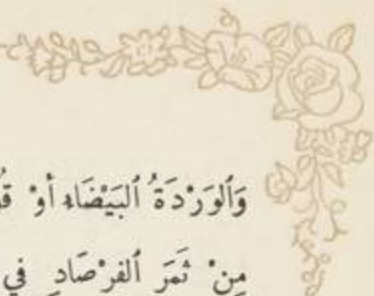 وَٱلوَرْدَةُ ٱلبَيْضَاءِ أوْ
مِنْ ثَمَرَ ٱلفرْصَادِ فِي